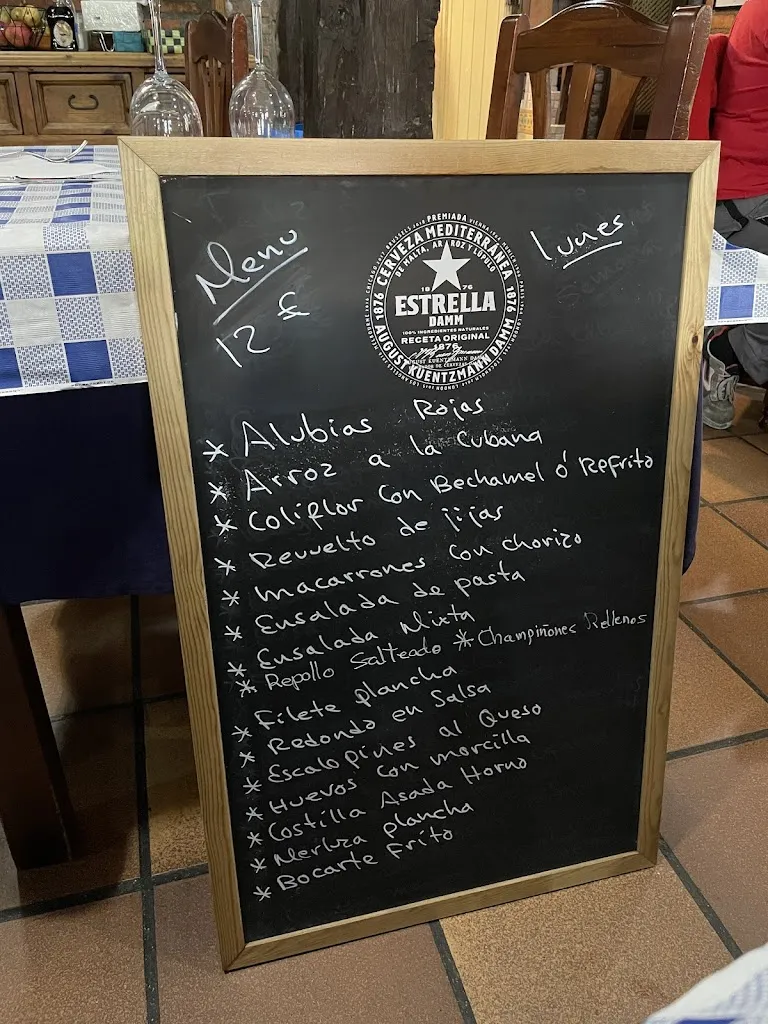 Menu
12 £
lunes
PREMIADA
CERVEZA MEDITERRÁNEA
DE MALTA, ARROZ Y LÚPULO
1876
1876
1876
ESTRELLA
DAMM
100% INGREDIENTES NATURALES
RECETA ORIGINAL
1876
AUGUST KUENTZMANN DAMM
* Alubias Rojas
* Arroz a la Cubana
* Coliflor con Bechamel ó Refrito
* Revuelto de jijas
* macarrones con chorizo
* Ensalada de pasta
* Ensalada Mixta
* Repollo Salteado * Champiñones Rellenos
* Filete plancha
* Redondo en Salsa
* Escalopines al Queso
* Huevos con morcilla
* Costilla Asada Horno
* Merluza plancha
* Bocarte frito